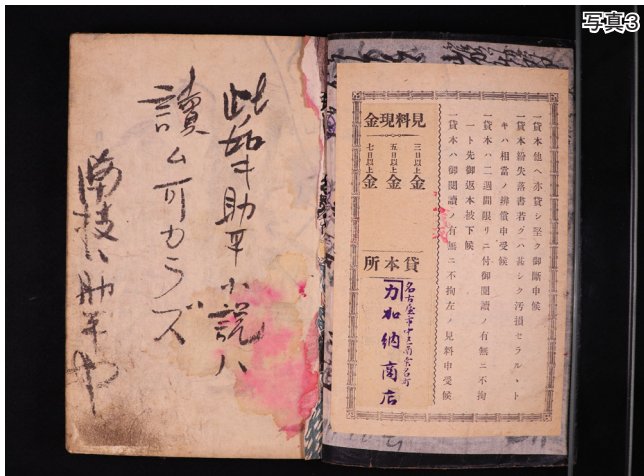 写真3
一貸本他ヘ亦貸シ堅ク御断申候
一貸本紛失落書若クハ甚シク汚損セラルヽト
キハ相當ノ辨償申受候
一貸本ハ二週間限リニ付御閲讀ノ有無ニ不拘
一ト先御返本被下候
一貸本ハ御閲讀ノ有無ニ不拘左ノ見料申受候
見料現金
三日以上金
五日以上金
七日以上金
貸本所
名古屋市中区南桑名町
加納商店
此如キ助平小説ハ
讀ム可カラズ
助平や